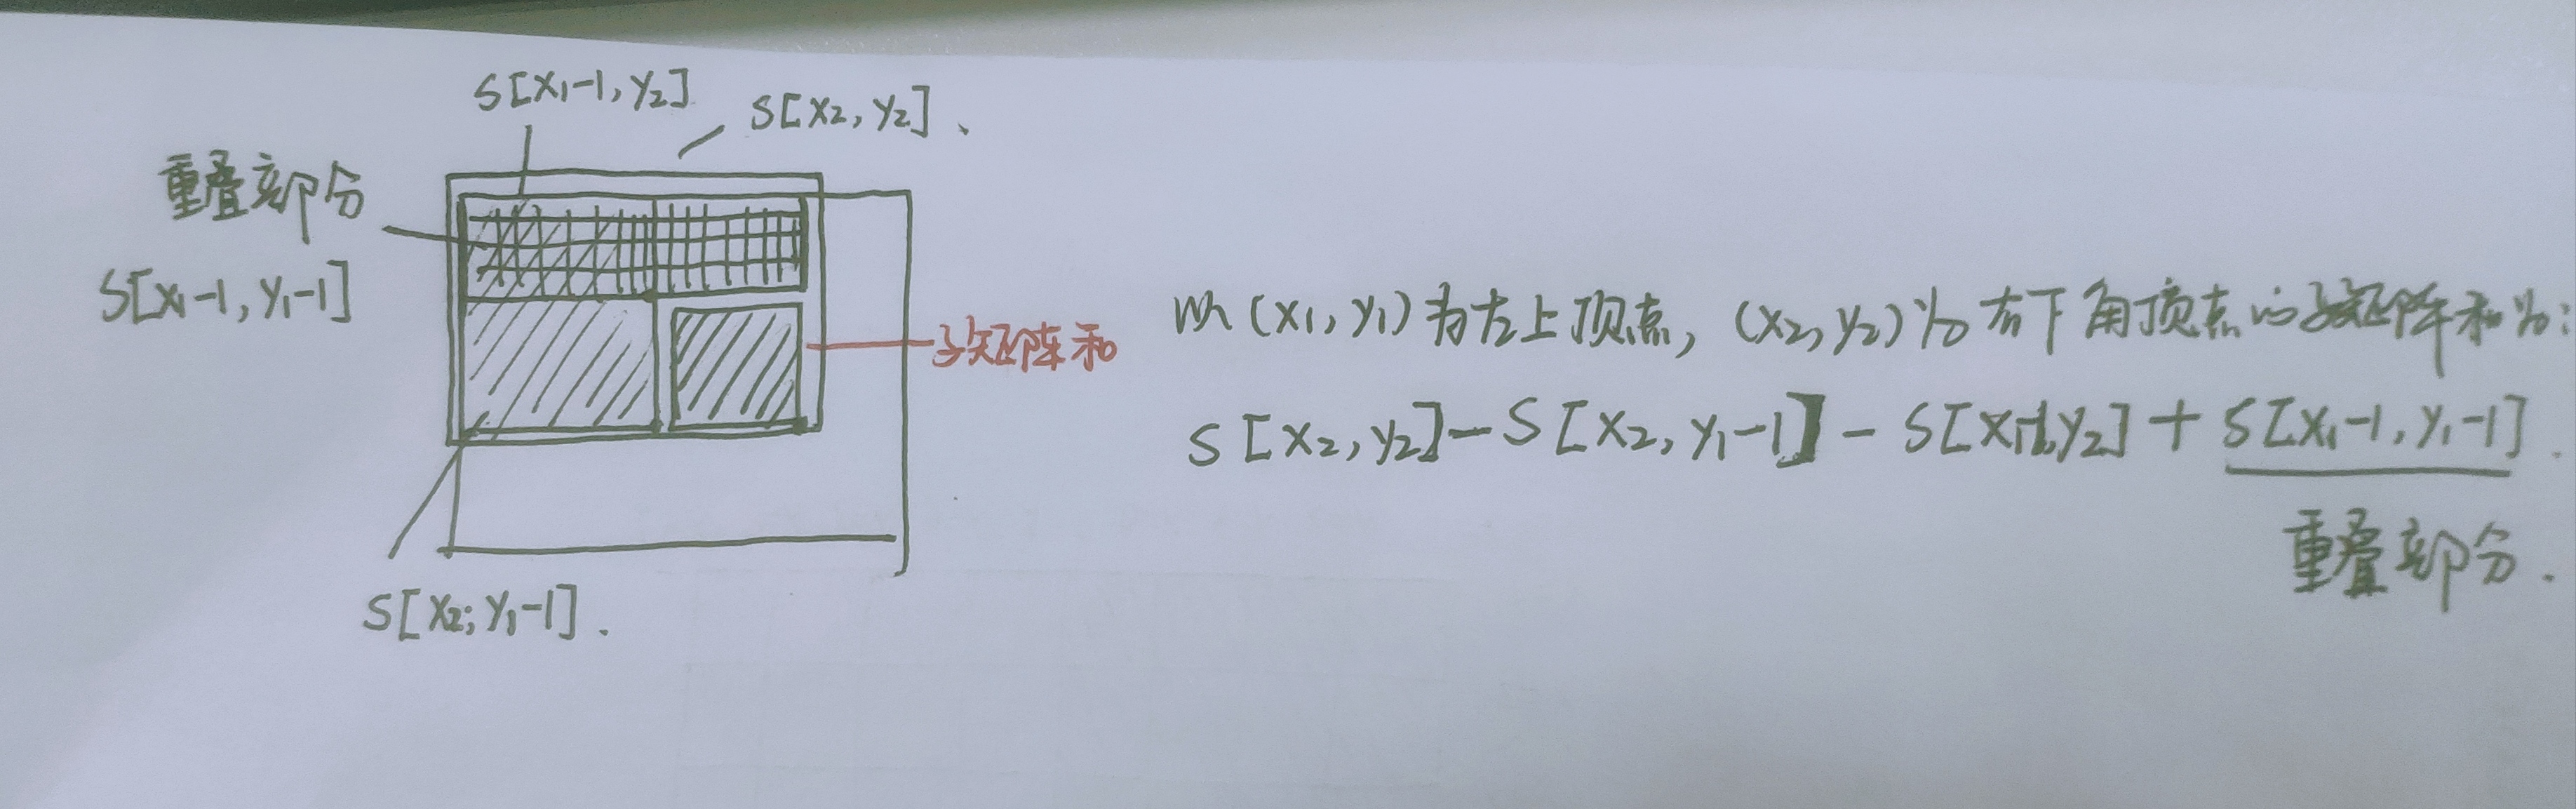 S[x₁-1, y₂]
S[x₂, y₂].
重叠部分
S[x₁-1, y₁-1]
子矩阵和
S[x₂; y₁-1].
以(x₁, y₁)为左上顶点, (x₂, y₂)为右下角顶点的子矩阵和为:
S[x₂, y₂]-S[x₂, y₁-1]-S[x₁-1,y₂]+S[x₁-1, y₁-1].
重叠部分.